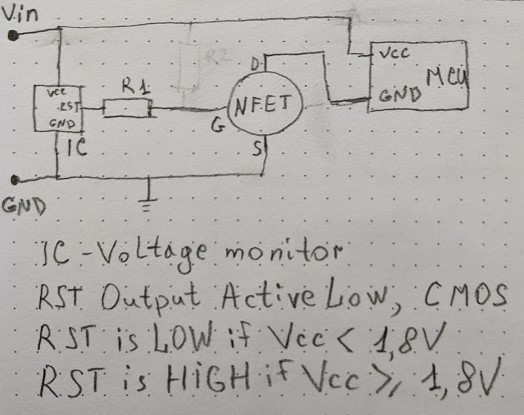 Vin
R2
D
VCC
MCU
GND
R1
VCC
RST
GND
G
NFET
S
IC
GND
IC - Voltage monitor
RST Output Active Low, CMOS
RST is LOW if Vcc < 1,8V
RST is HIGH if Vcc ⩾ 1,8V